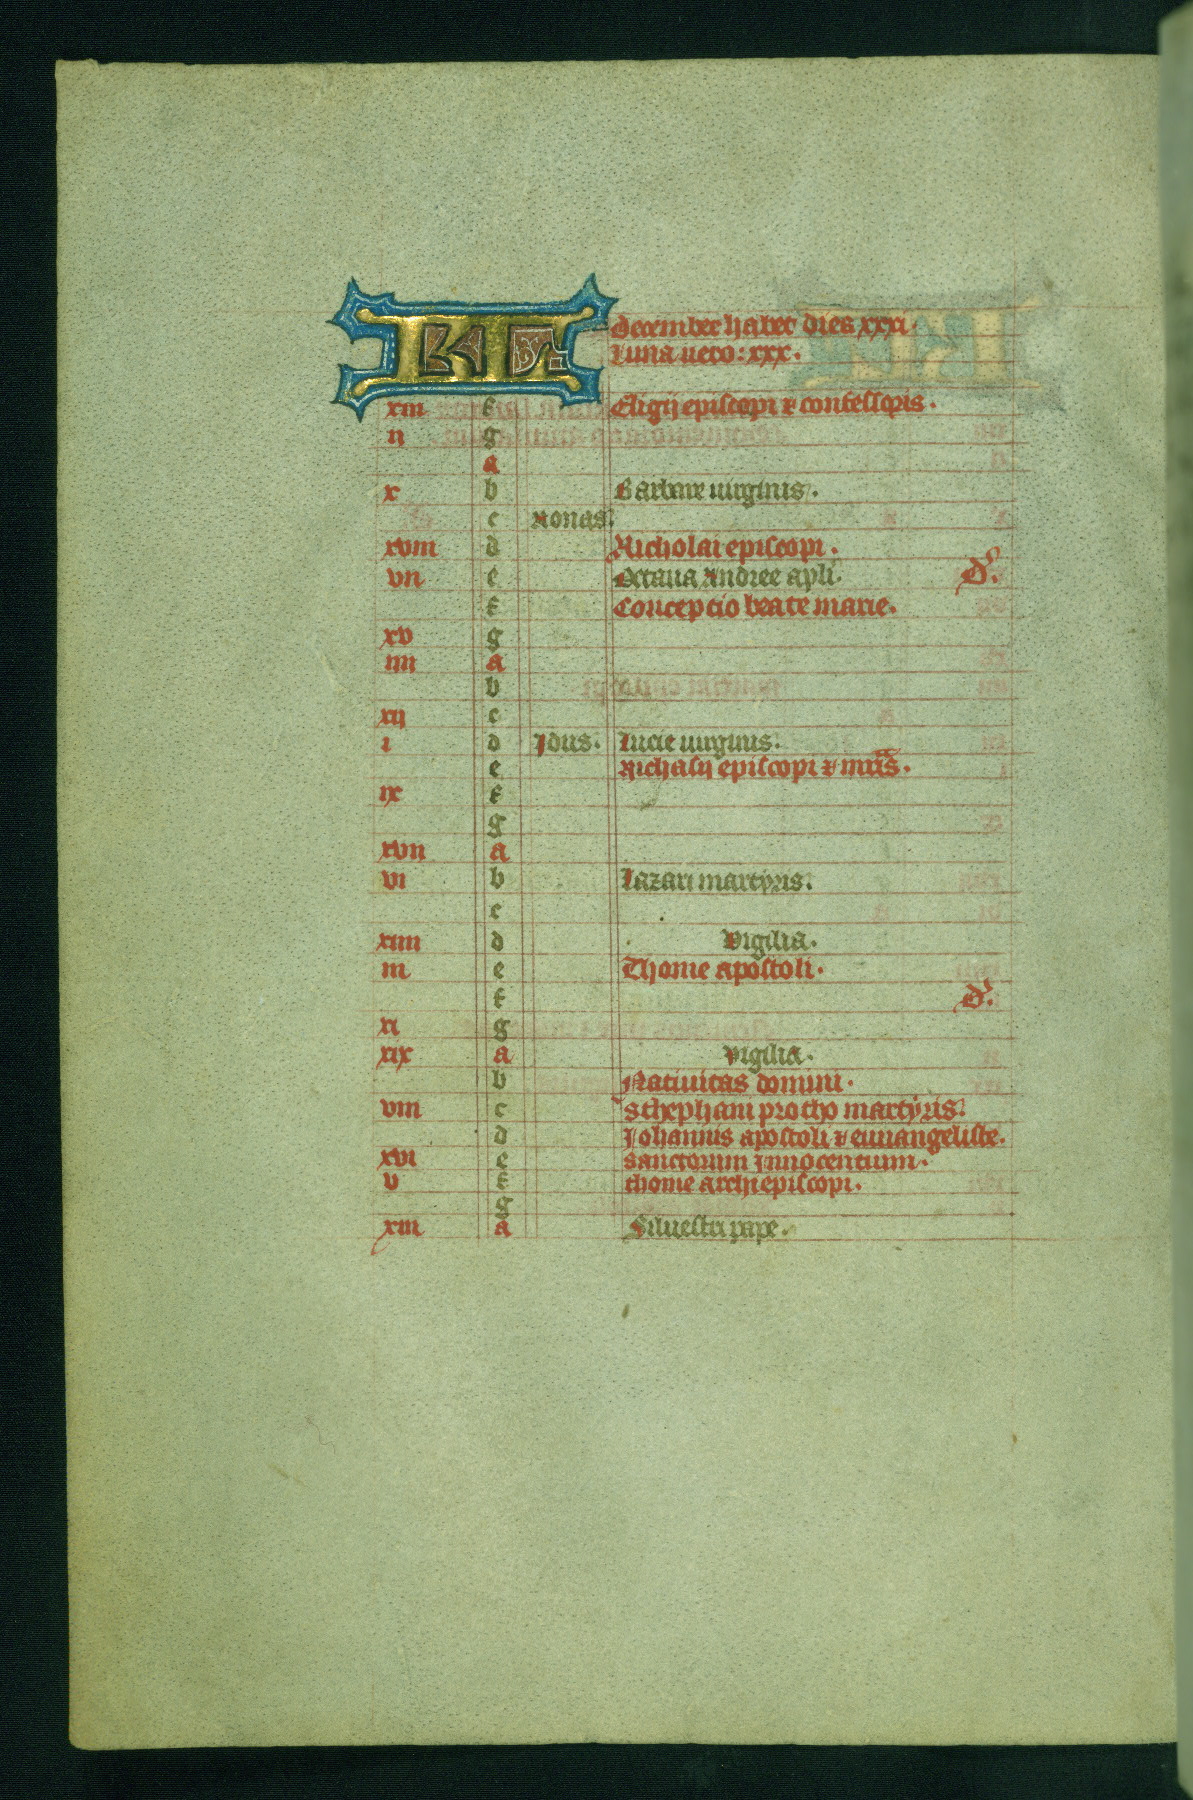 KL December habet dies xxxi.
Luna uero: xxx.
xiii f Eligij episcopi & confessoris.
ij g
a
x b Barbare uirginis.
c Nonas.
xviii d Nicholai episcopi.
vii e Octaua Andree apli. d.
f Conceptio beate marie.
xv g
iiii a
b
xij c
i d Jdus. Lucie uirginis.
e Nichasij episcopi & mris.
ix f
g
xvii a
vi b Lazari martyris.
c
xiiii d Vigilia.
iii e Thome apostoli.
f d.
xi g
xix a Vigilia.
b Natiuitas domini.
viii c Sthephani protho martyris.
d Johannis apostoli & euuangeliste.
xvi e Sanctorum Jnnocentium.
v f thome archiepiscopi.
g
xiii a Siluestri pape.